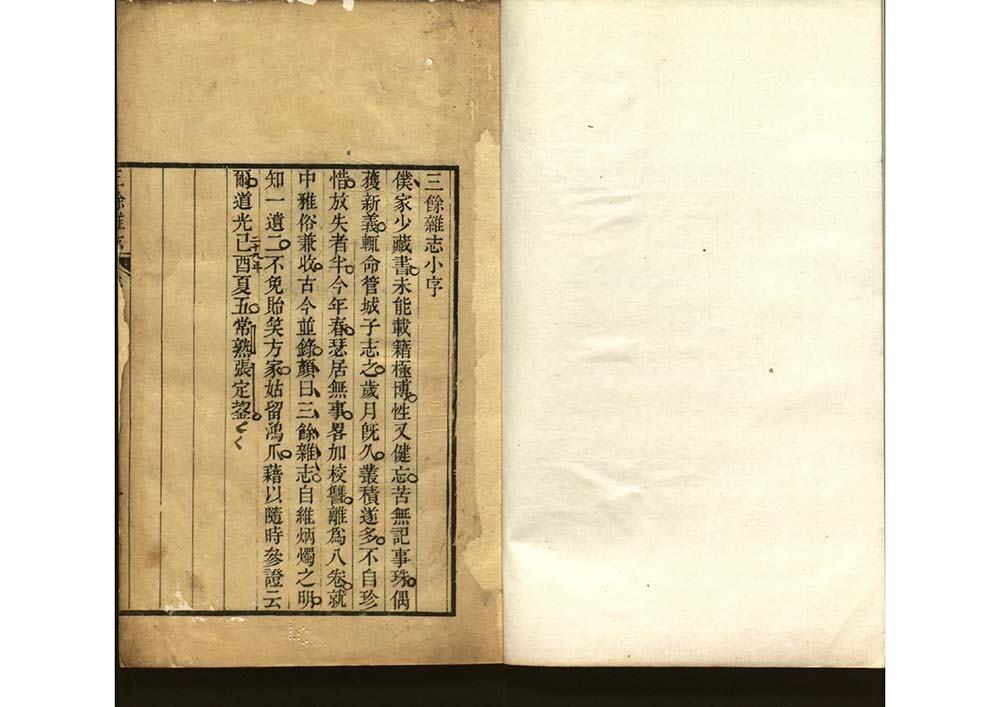 三餘雜志小序
僕家少藏書未能載籍極博性又健忘苦無記事珠偶
獲新義輒命管城子志之歲月旣久叢積遂多不自珍
惜放失者半今年春瑟居無事畧加校讐離爲八卷就
中雅俗兼收古今並錄顏曰三餘雜志自維炳燭之明
知一遺二不免貽笑方家姑留鴻爪藉以隨時參證云
爾道光己酉夏五常熟張定鋆
二十九年
三餘雜志